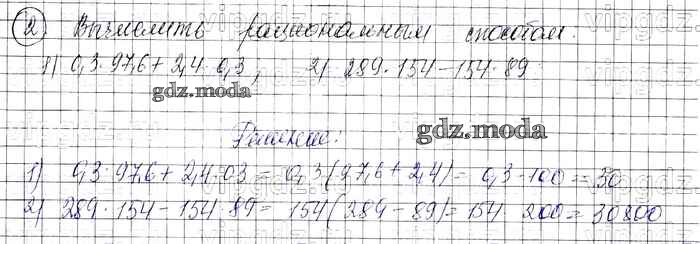 2 Вычислить рациональным способом.
1) 0,3·97,6 + 2,4·0,3; 2) 289·154 – 154·89
gdz.moda
Решение:
gdz.moda
1) 0,3·97,6 + 2,4·03 = 0,3(97,6 + 2,4) = 0,3·100 = 30
2) 289·154 – 154·89 = 154(289 – 89) = 154·200 = 30800